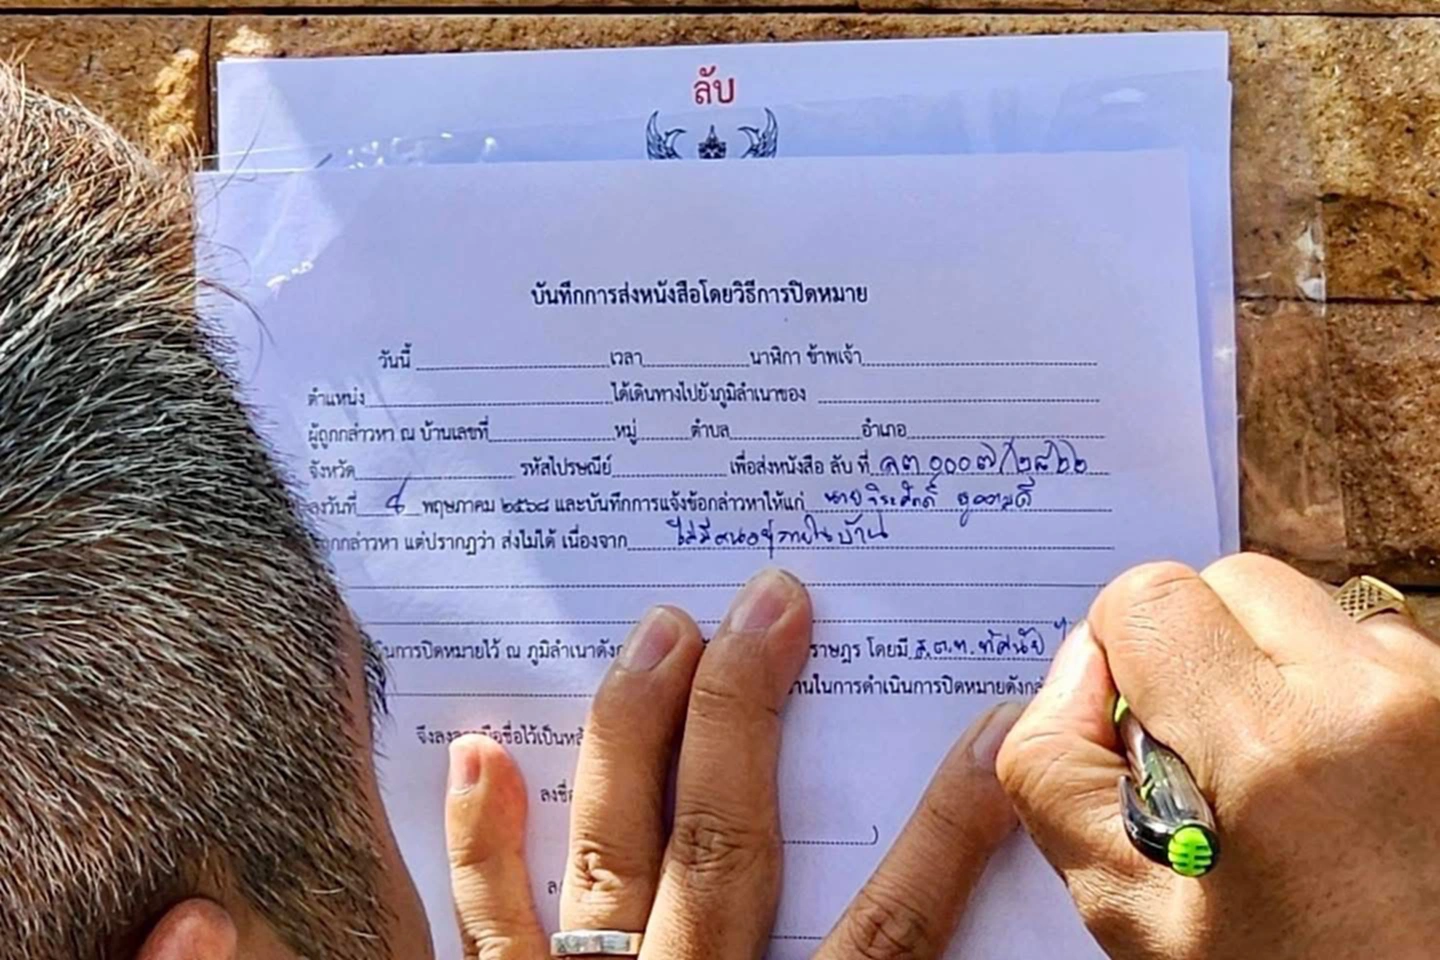 ลับ
บันทึกการส่งหนังสือโดยวิธีการปิดหมาย
วันนี้ เวลา นาฬิกา ข้าพเจ้า
ตำแหน่ง ได้เดินทางไปยังภูมิลำเนาของ
ผู้ถูกกล่าวหา ณ บ้านเลขที่ หมู่ ตำบล อำเภอ
จังหวัด รหัสไปรษณีย์ เพื่อส่งหนังสือ ลับ ที่ ลต ๐๐๐๗/๒๘๖๒
ลงวันที่ ๘ พฤษภาคม ๒๕๖๘ และบันทึกการแจ้งข้อกล่าวหาให้แก่ นาย
ถูกกล่าวหา แต่ปรากฏว่า ส่งไม่ได้ เนื่องจาก ไม่มีคนอยู่ภายในบ้าน
นินการปิดหมายไว้ ณ ภูมิลำเนาดังก ราษฎร โดยมี ส.ต.ท. ทัศนัย
านในการดำเนินการปิดหมายดังกล่
จึงลงลายมือชื่อไว้เป็นหลั
ลงชื่อ